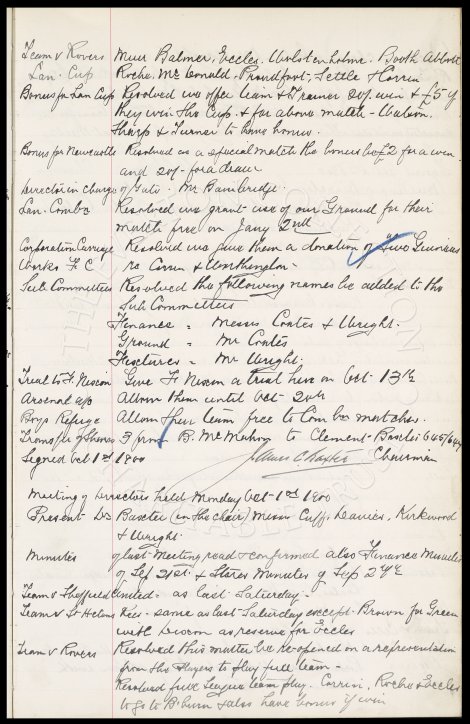 Team v Rovers Muir Balmer, Eccles. Wolstenholme. Booth Abbott
Lan. Cup Roche, McDonald, Proudfoot, Settle
Bonus for Lan Cup Resolved we offer team & Trainer 20/- win & £5 if
they win the Cup. & for above match - Watson.
Sharp & Turner to have bonus.
Bonus for Newcastle Resolved as a special match the bonus be £2 for a win
and 20/- for a draw
Director in charge of Gate. Mr Bainbridge.
Lan. Combn Resolved we grant use of our Ground for their
match free on Jany 2nd
Corporation Carriage Resolved we give them a donation of Two Guineas
Works F.C re Corrin & Worthington -
Sub Committees Resolved the following names be added to the
Sub Committees
Finance = Messrs Coates & Wright.
Ground = Mr Coates
Fixtures = Mr Wright.
Trial to F. Nixon Give F. Nixon a trial here on Oct 13th
Arsenal a/c Allow them until Oct 20th
Boys Refuge Allow their team free to Com bn matches.
Transfer of Shares 3 from B. McMahon to Clement Baxter 645/647
Signed Oct 1st 1900 James C Baxter Chairman
Meeting of Directors held Monday Oct 1st 1900
Present Dr Baxter (in the chair) Messrs Cuff, Davies, Kirkwood
& Wright
Minutes of last meeting read & confirmed also Finance Minutes
of Sep 21st & Stores Minutes of Sep 27th
Team v Sheffield United - as last Saturday -
Team v St Helens Res - same as last Saturday except Brown for Green
with Dixon as reserve for Eccles
Team v Rovers Resolved this matter be re-opened on a representation
from the players to play full team -
Resolved full League team play. Corrin, Roche & Eccles
to go to B'burn & also have bonus if win